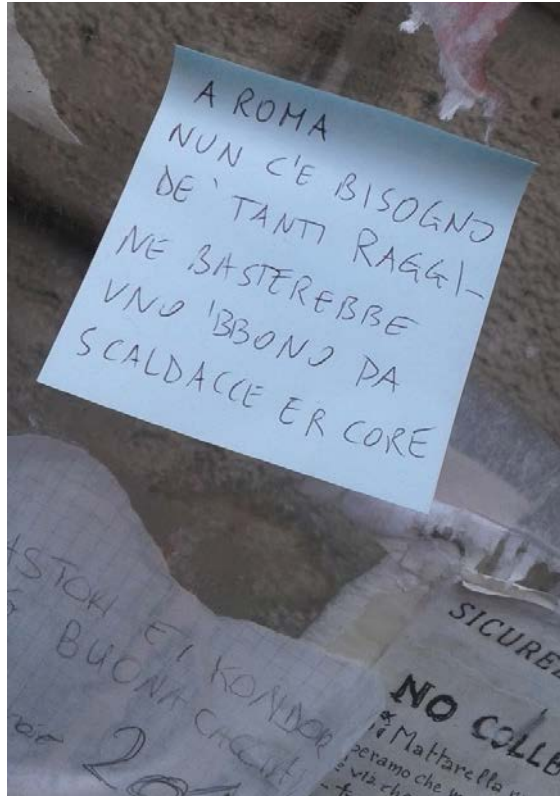 A ROMA
NUN C'E BISOGNO
DE' TANTI RAGGI-
NE BASTEREBBE
UNO 'BBONO DA
SCALDACCE ER CORE
EI KONDOR
BUONA CACCIA
SICUREZ
NO COLLE
Mattarella
peramo che
via che